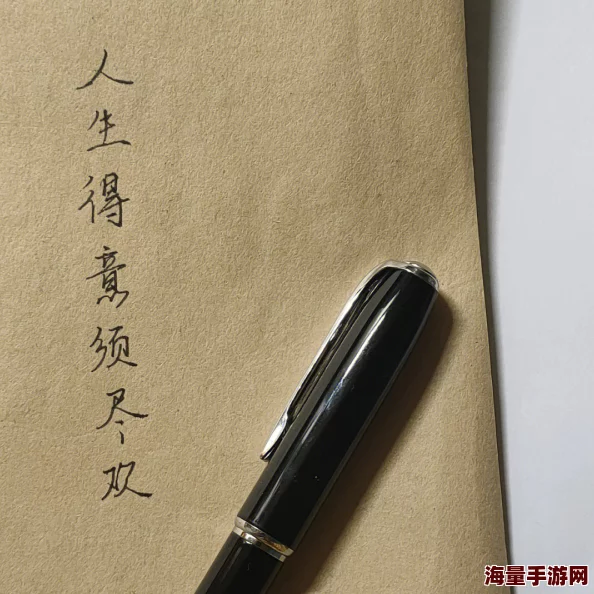 人生得意须尽欢
海量手游网